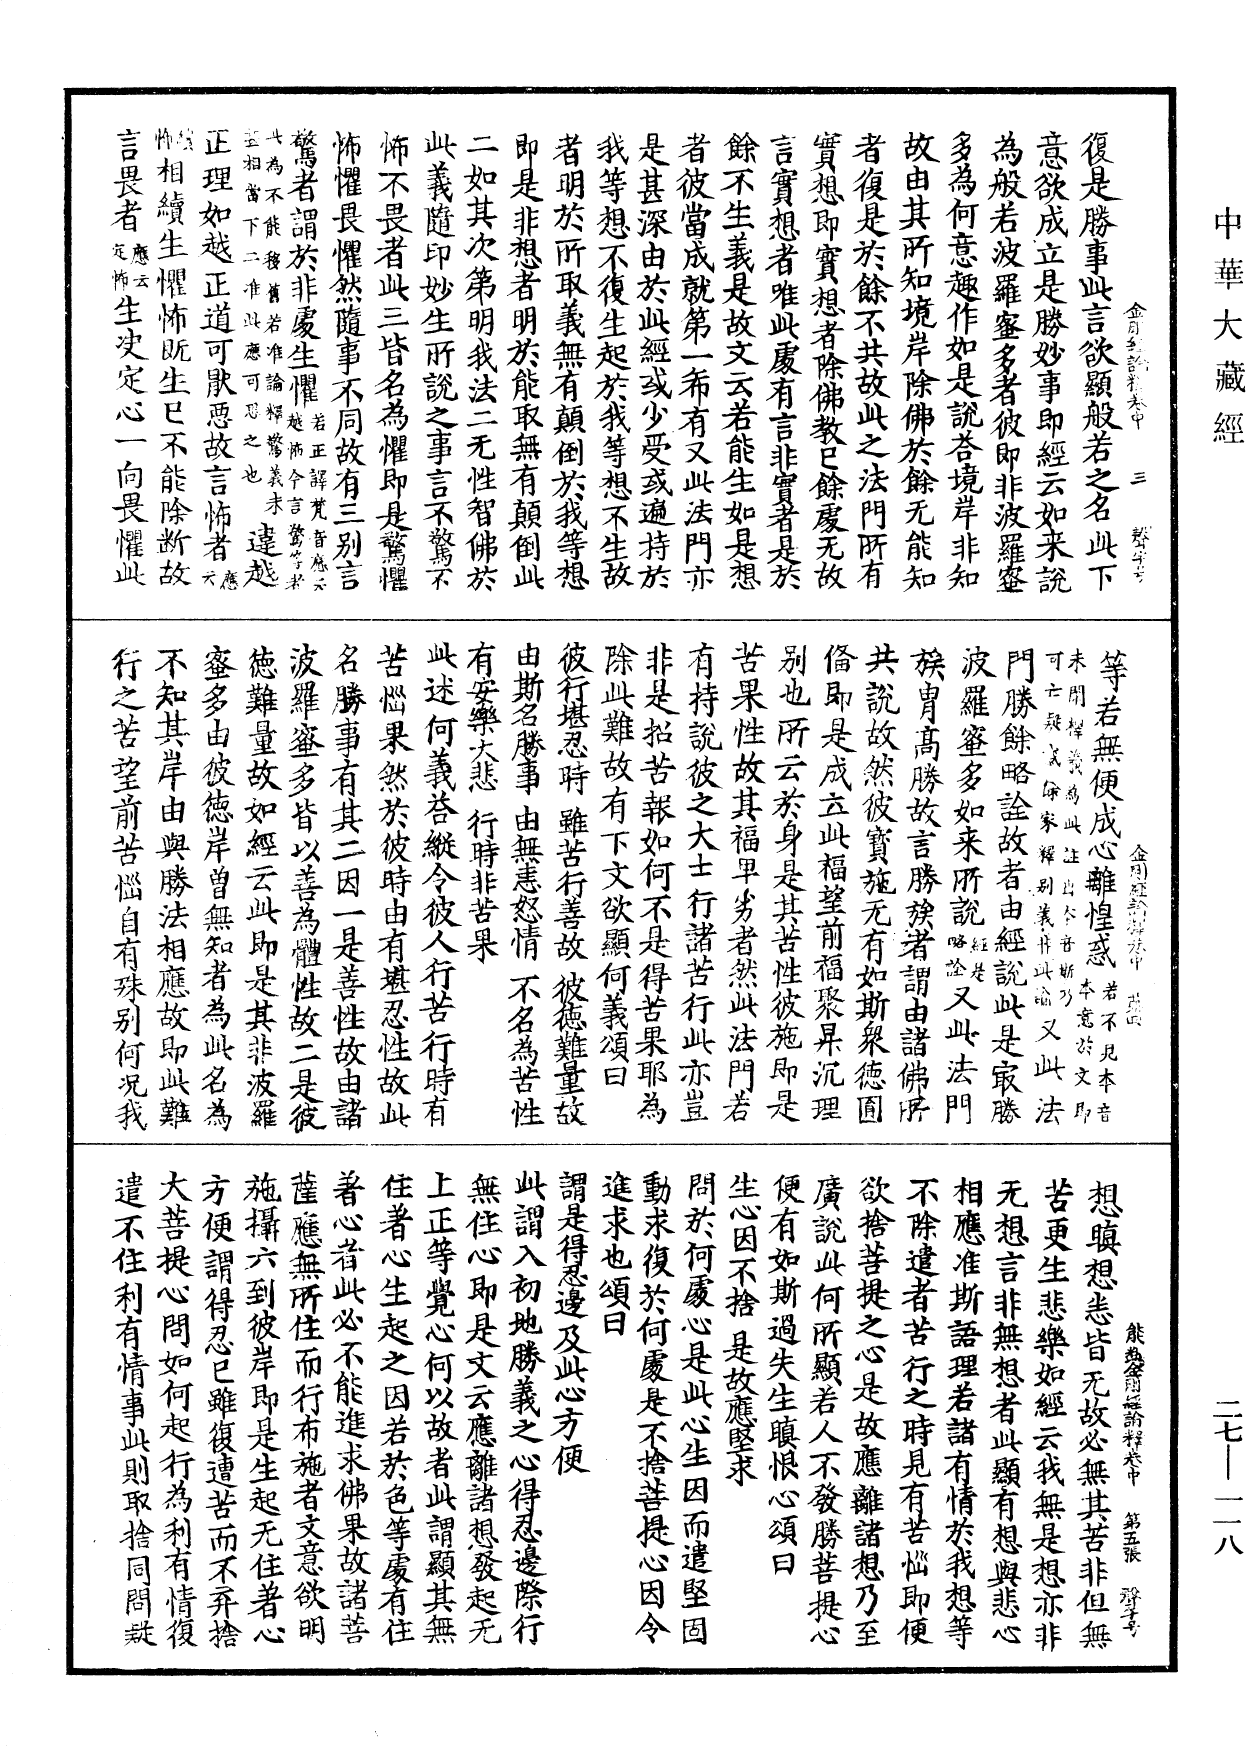 中華大藏經
復是勝事此言欲顯般若之名此下
意欲成立是勝妙事即經云如来說
為般若波羅蜜多者彼即非波羅蜜
多為何意趣作如是說荅境岸非知
故由其所知境岸除佛於餘无能知
者復是於餘不共故此之法門所有
實想即實想者除佛教已餘處无故
言實想者唯此處有言非實者是於
餘不生義是故文云若能生如是想
者彼當成就第一希有又此法門亦
是甚深由於此經或少受或遍持於
我等想不復生起於我等想不生故
者明於所取義無有顛倒於我等想
即是非想者明於能取無有顛倒此
二如其次第明我法二无性智佛於
此義隨印妙生所說之事言不驚不
怖不畏者此三皆名為懼即是驚懼
怖懼畏懼然隨事不同故有三別言
驚者謂於非處生懼若正譯梵音應云越怖今言驚等者
此為不能移舊若准論釋驚義未甚相當下二准此應可悉之也違越
正理如越正道可猒惡故言怖者應云
續怖相續生懼怖既生已不能除断故
言畏者應云定怖生决定心一向畏懼此
金剛經論釋卷中 三 聲字号
等若無便成心離惶惑若不見本音
未閑釋義為此注出本音斯乃本意於文即可亡疑又此法
門勝餘略詮故者由經說此是最勝
波羅蜜多如来所說經是略詮又此法門
族胄髙勝故言勝族者謂由諸佛所
共說故然彼寳施无有如斯衆徳圓
俻即是成立此福望前福聚昇沉理
別也所云於身是其苦性彼施即是
苦果性故其福卑劣者然此法門若
有持說彼之大士行諸苦行此亦豈
非是招苦報如何不是得苦果耶為
除此難故有下文欲顯何義頌曰
彼行堪忍時 雖苦行善故 彼徳難量故
由斯名勝事 由無恚怒情 不名為苦性
有安樂大悲 行時非苦果
此述何義荅縱令彼人行苦行時有
苦惱果然於彼時由有堪忍性故此
名勝事有其二因一是善性故由諸
波羅蜜多皆以善為體性故二是彼
徳難量故如經云此即是其非波羅
蜜多由彼徳岸曽無知者為此名為
不知其岸由與勝法相應故即此難
行之苦望前苦惱自有殊别何况我
想瞋想恚皆无故必無其苦非但無
苦更生悲樂如經云我無是想亦非
无想言非無想者此顯有想與悲心
相應准斯語理若諸有情於我想等
不除遣者苦行之時見有苦惱即便
欲捨菩提之心是故應離諸想乃至
廣說此何所顯若人不發勝菩提心
便有如斯過失生瞋恨心頌曰
生心因不捨 是故應堅求
問於何處心是此心生因而遣堅固
勤求復於何處是不捨菩提心因令
進求也頌曰
謂是得忍邊及此心方便
此謂入初地勝義之心得忍邊際行
無住心即是文云應離諸想發起无
上正等覺心何以故者此謂顯其無
住著心生起之因若於色等處有住
著心者此必不能進求佛果故諸菩
薩應無所住而行布施者文意欲明
施攝六到彼岸即是生起无住著心
方便謂得忍已雖復遭苦而不弃捨
大菩提心問如何起行為利有情復
遣不住利有情事此則取捨同問疑
能斷金剛經論釋卷中 第五張 聲字号
二七—一一八